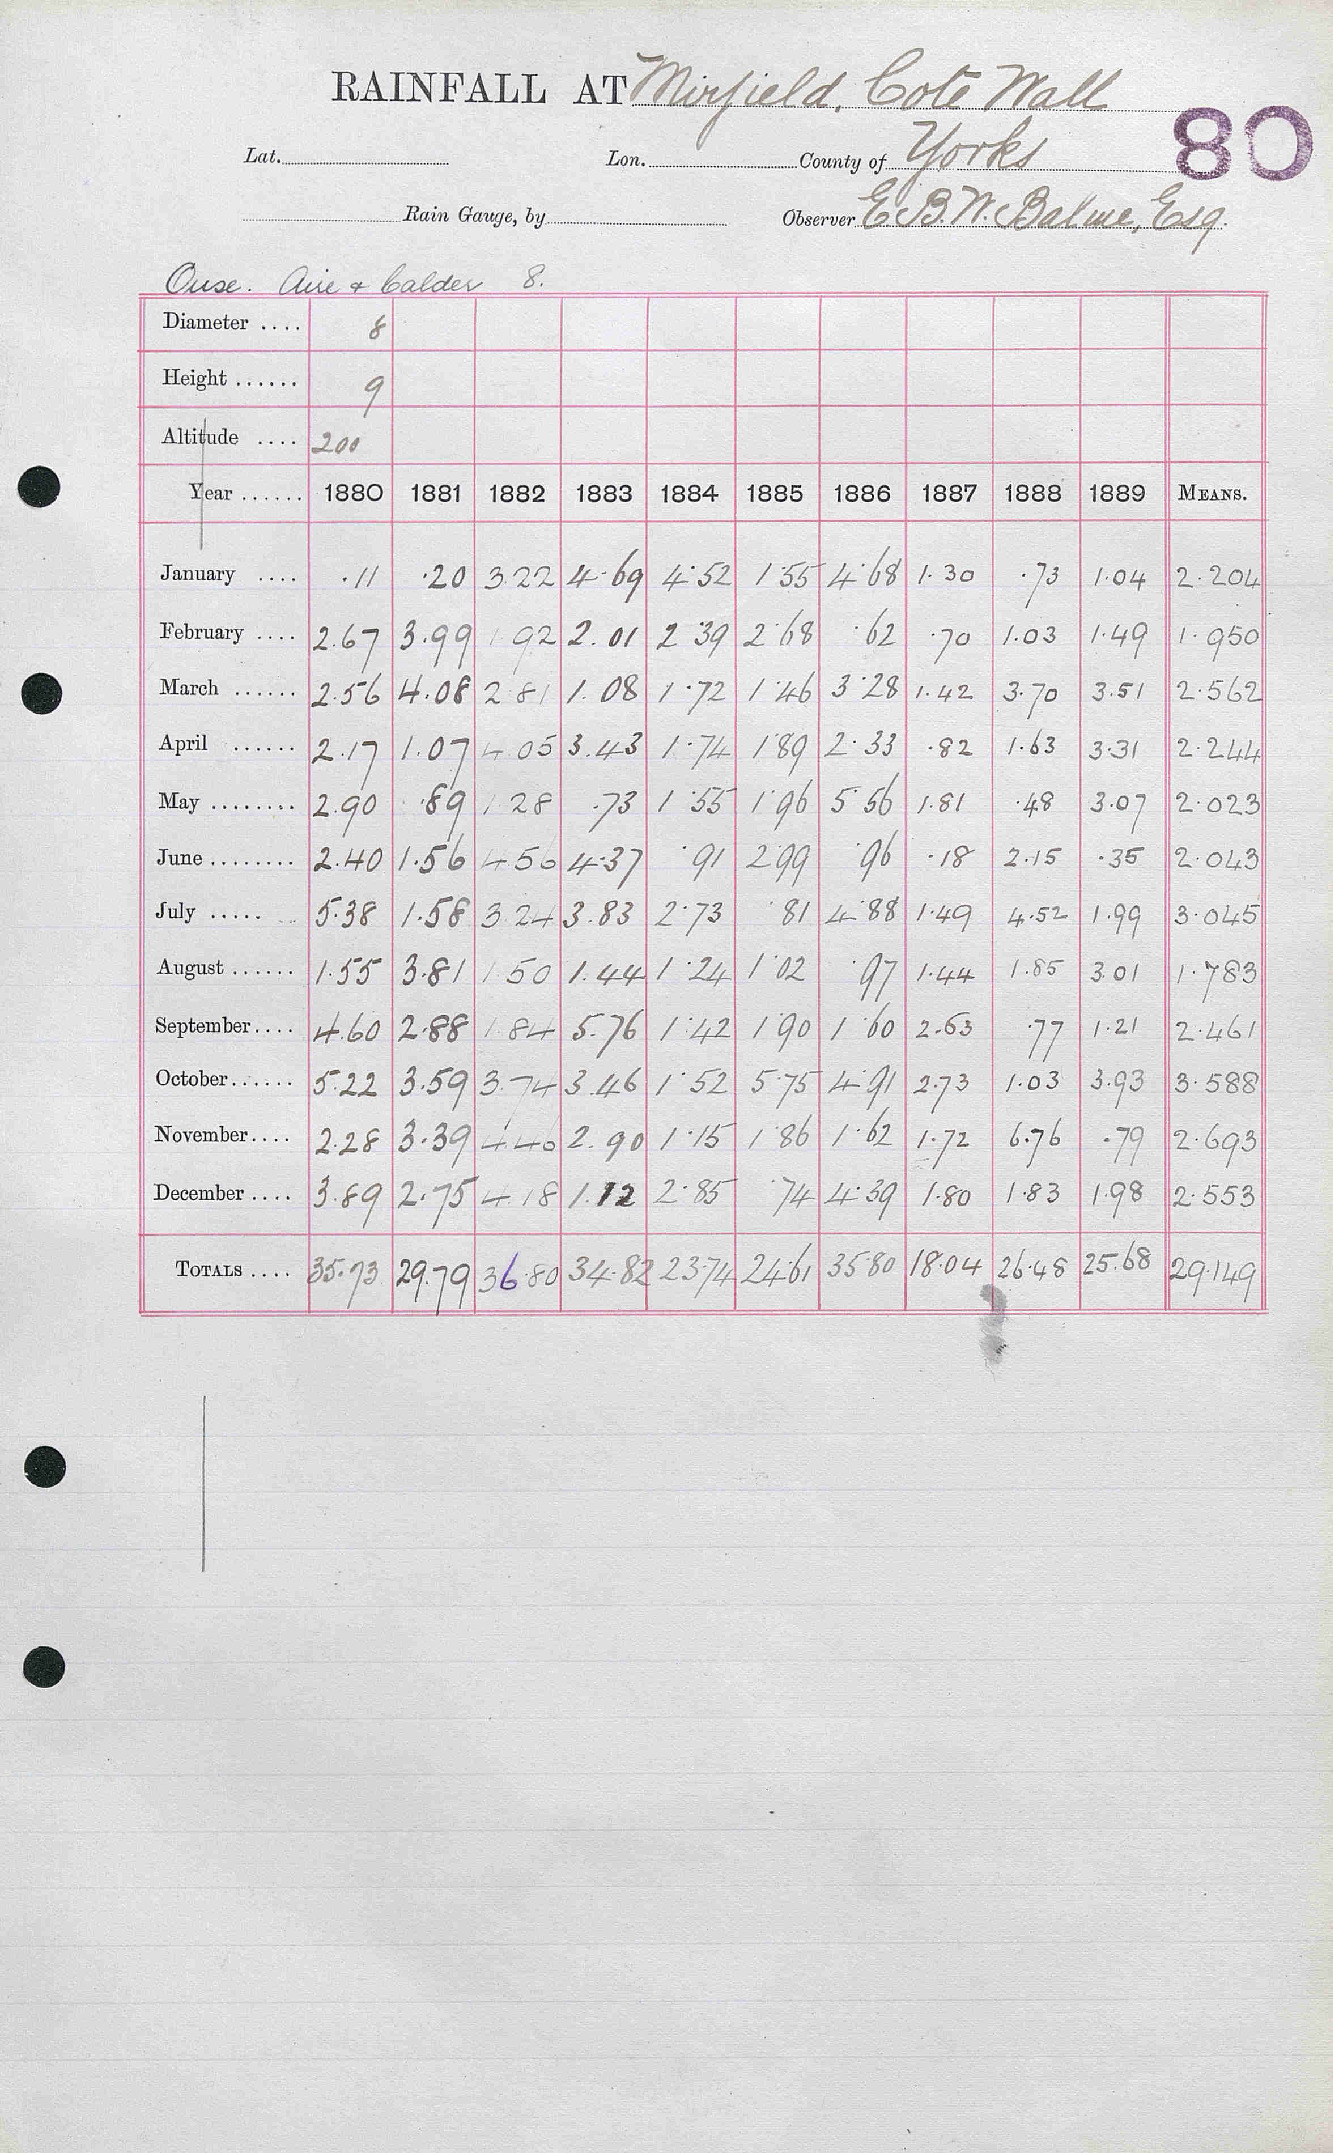 RAINFALL AT Mirfield, Cote Wall
80
Lat. Lon. County of Yorks
Rain Gauge, by Observer E. B. W. Balme, Esq.
Ouse. Aire & Calder 8.
Diameter .... 8
Height ...... 9
Altitude .... 200
Year ...... 1880 1881 1882 1883 1884 1885 1886 1887 1888 1889 MEANS.
January .... .11 .20 3.22 4.69 4.52 1.55 4.68 1.30 .73 1.04 2.204
February .... 2.67 3.99 1.92 2.01 2.39 2.68 .62 .70 1.03 1.49 1.950
March ...... 2.56 4.08 2.81 1.08 1.72 1.46 3.28 1.42 3.70 3.51 2.562
April ...... 2.17 1.07 4.05 3.43 1.74 1.89 2.33 .82 1.63 3.31 2.244
May ........ 2.90 .89 1.28 .73 1.55 1.96 5.56 1.81 .48 3.07 2.023
June ........ 2.40 1.56 4.56 4.37 .91 2.99 .96 .18 2.15 .35 2.043
July ..... 5.38 1.58 3.24 3.83 2.73 .81 4.88 1.49 4.52 1.99 3.045
August ...... 1.55 3.81 1.50 1.44 1.24 1.02 .97 1.44 1.85 3.01 1.783
September.... 4.60 2.88 1.84 5.76 1.42 1.90 1.60 2.63 .77 1.21 2.461
October...... 5.22 3.59 3.74 3.46 1.52 5.75 4.91 2.73 1.03 3.93 3.588
November.... 2.28 3.39 4.46 2.90 1.15 1.86 1.62 1.72 6.76 .79 2.693
December .... 3.89 2.75 4.18 1.12 2.85 .74 4.39 1.80 1.83 1.98 2.553
TOTALS .... 35.73 29.79 36.80 34.82 23.74 24.61 35.80 18.04 26.48 25.68 29.149